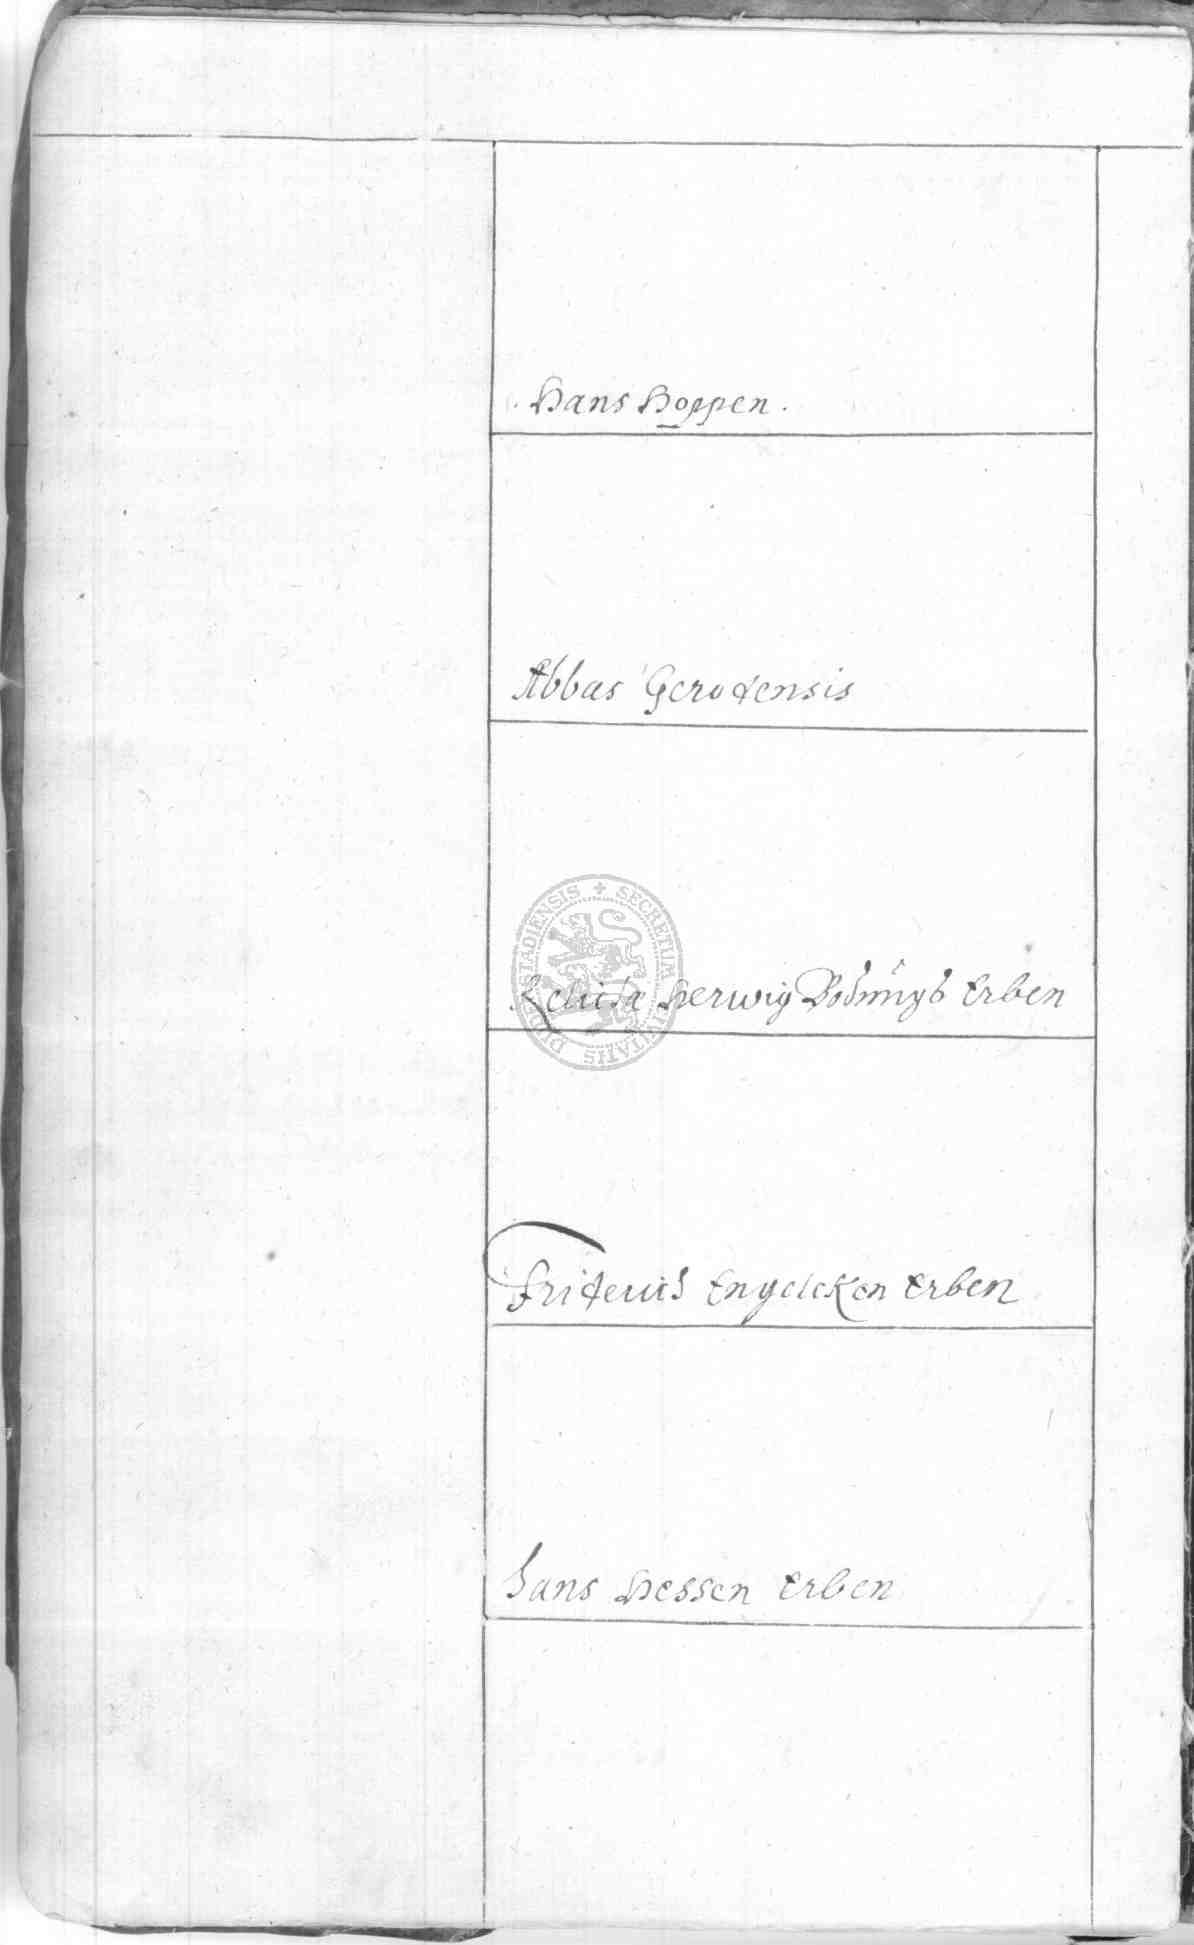 Hans Hoppen.
Abbas Gerodensis
Relicta Herwig Erben
Friderich Engelcken Erben
Hans Hessen Erben
SECRETUM CIVITATIS DUDERSTADIENSIS